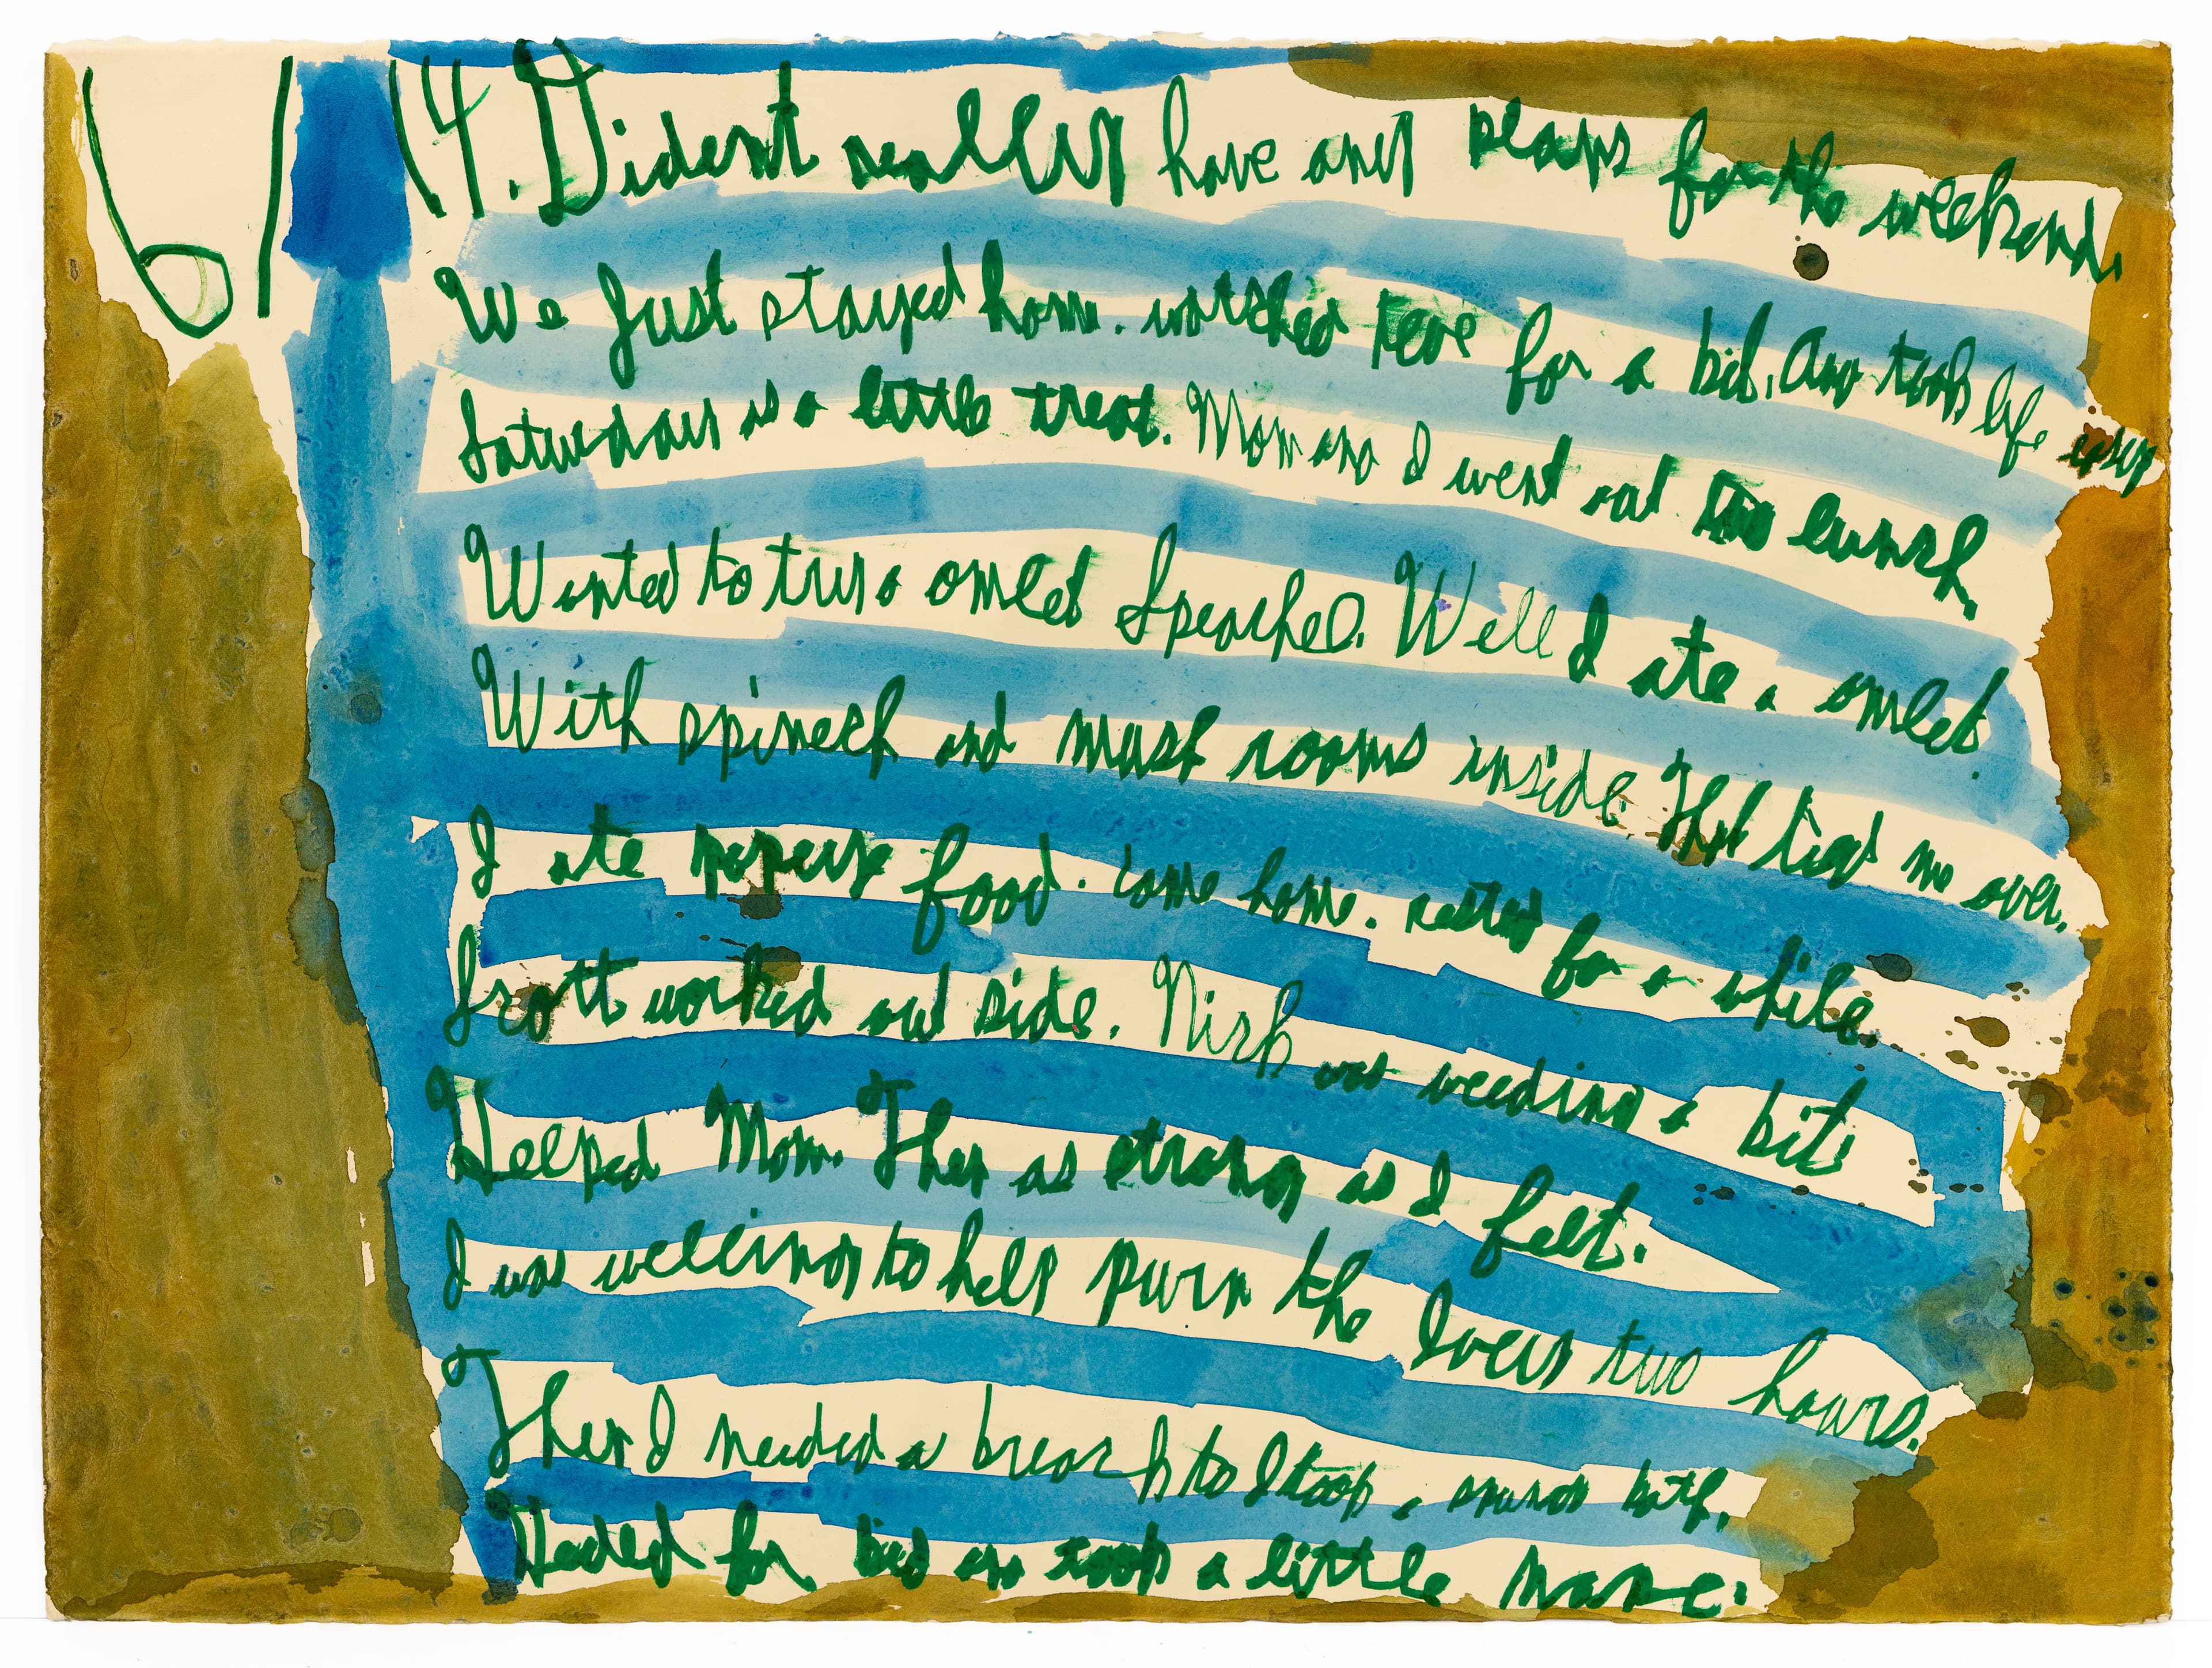 6/14. Dident really have any plans for the weekend.
We Just stayed home. watched teve for a bit. And took life easy
Saturday is a little treat. Mom and I went out too lunch.
Wanted to try a omlet Speachel. Well I ate a omlet.
With spinech and mush rooms inside. That tied me over.
I ate food. Came home. rested for a while.
Scott worked out side. Nick was weeding a bit.
Helped Mom. Then as strong as I felt.
I was welling to help purn the Ivey two hours.
Then I needed a breack to I took a bath.
Heded for bed an took a little